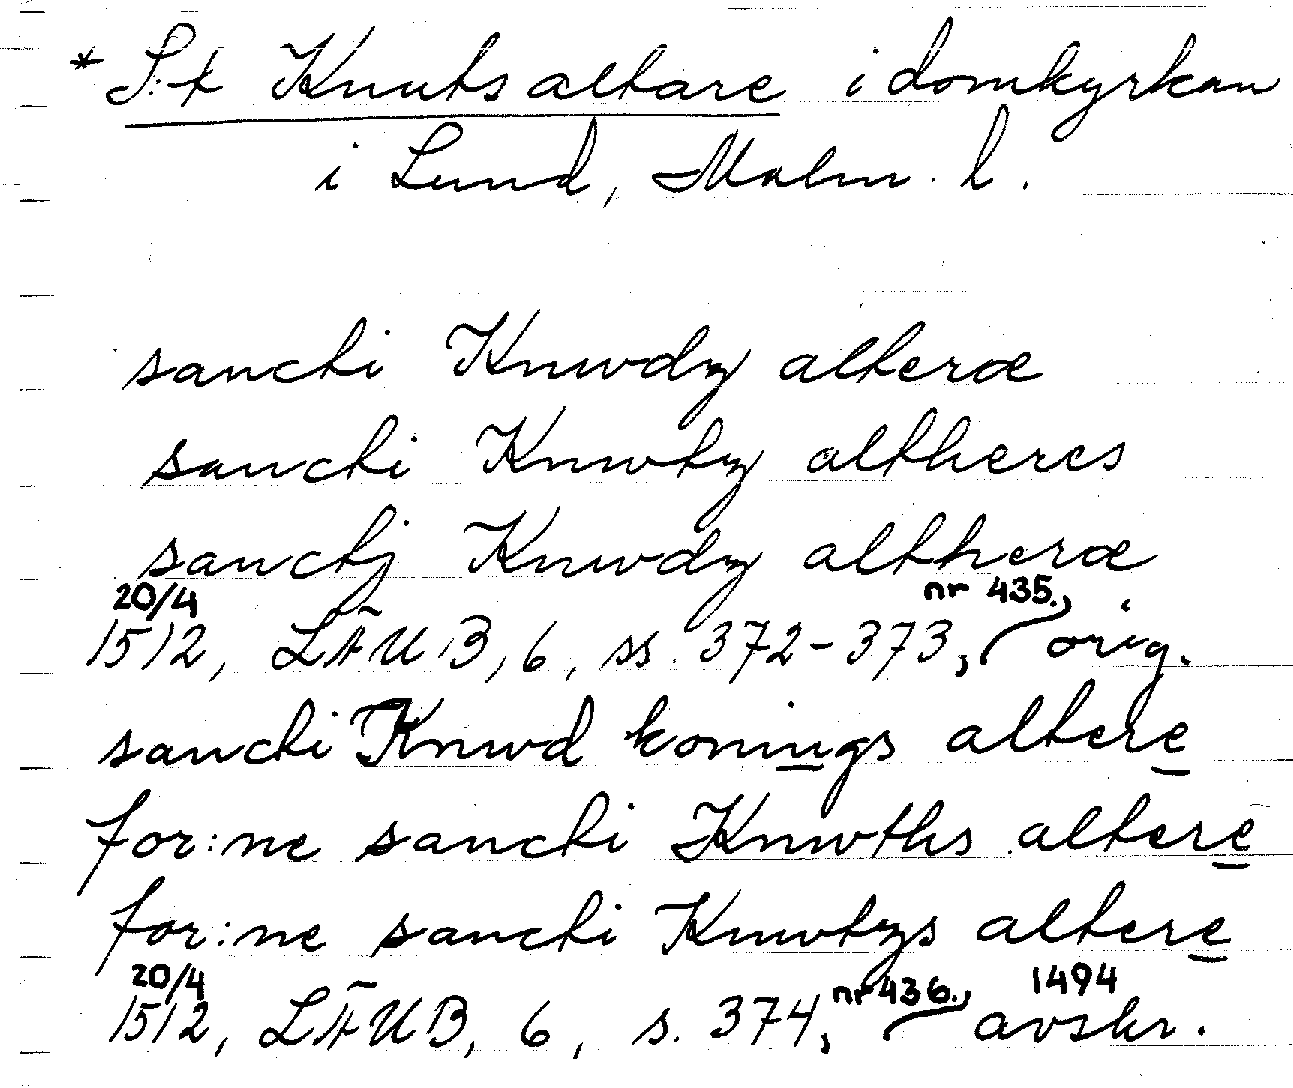 * S:t Knuts altare i domkyrkan
i Lund, Malm. l.
sancti Knwdz alteræ
sancti Knwtz altheres
sanctj Knwdz altheræ
20/4 nr 435.,
1512, LÄUB, 6, ss. 372-373, orig.
sancti Knwd konings altere
for:ne sancti Knwths altere
for:ne sancti Knwtzs altere
20/4 nr 436., 1494
1512, LÄUB, 6, s. 374, avskr.